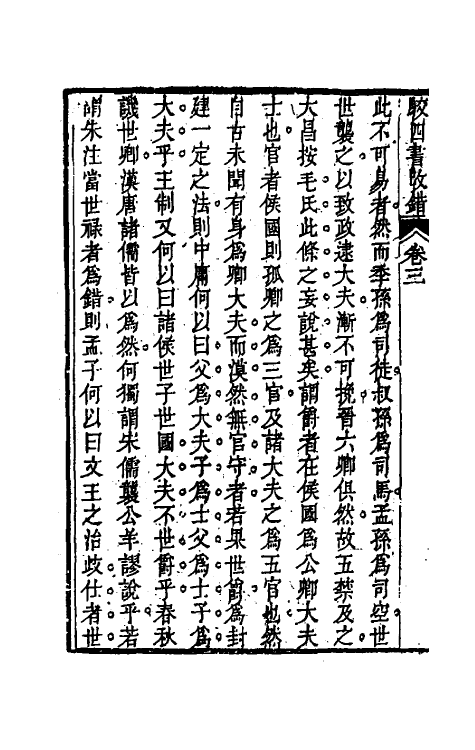 駁四書改錯 卷三
此不可易者然而季孫爲司徒叔孫爲司馬孟孫爲司空世
世襲之以致政逮大夫漸不可挽晉六卿俱然故五禁及之
大昌按毛氏此條之妄說甚矣謂爵者在侯國爲公卿大夫
士也官者侯國則孤卿之爲三官及諸大夫之爲五官也然
自古未聞有身爲卿大夫而漠然無官守者若果世爵爲封
建一定之法則中庸何以曰父爲大夫子爲士父爲士子爲
大夫乎王制又何以曰諸侯世子世國大夫不世爵乎春秋
譏世卿漢唐諸儒皆以爲然何獨謂宋儒襲公羊謬說乎若
謂朱注當世祿者爲錯則孟子何以曰文王之治歧仕者世